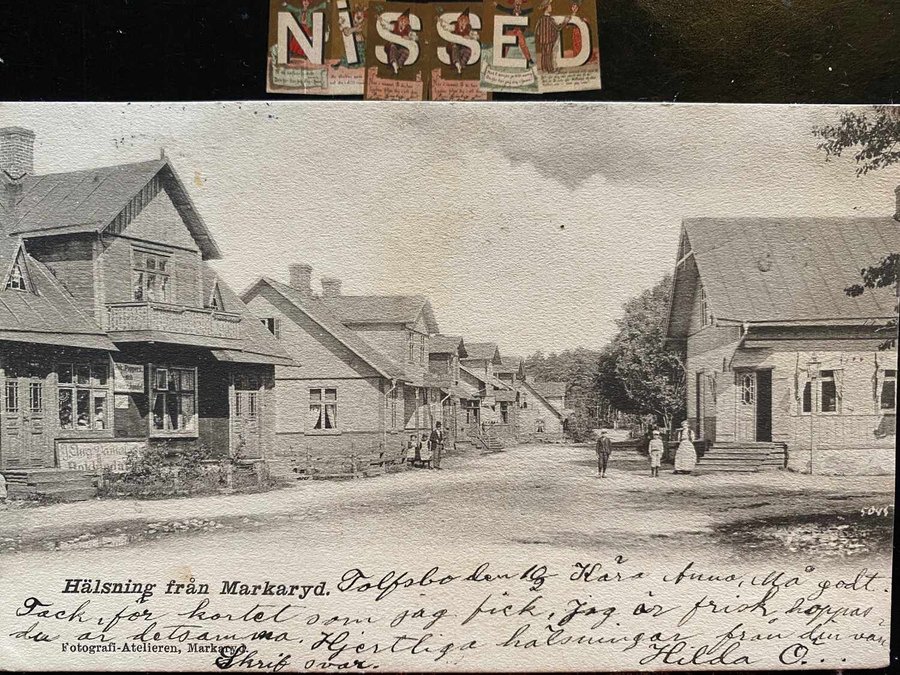 NISSED
5045
Hälsning från Markaryd. Tolfsbo den Kära Anna, Må godt.
Tack för kortet som jag fick, Jag är frisk hoppas
du är detsamma. Hjertliga hälsningar från din vän
Fotografi-Atelieren, Markaryd. Skrif svar. Hilda O...